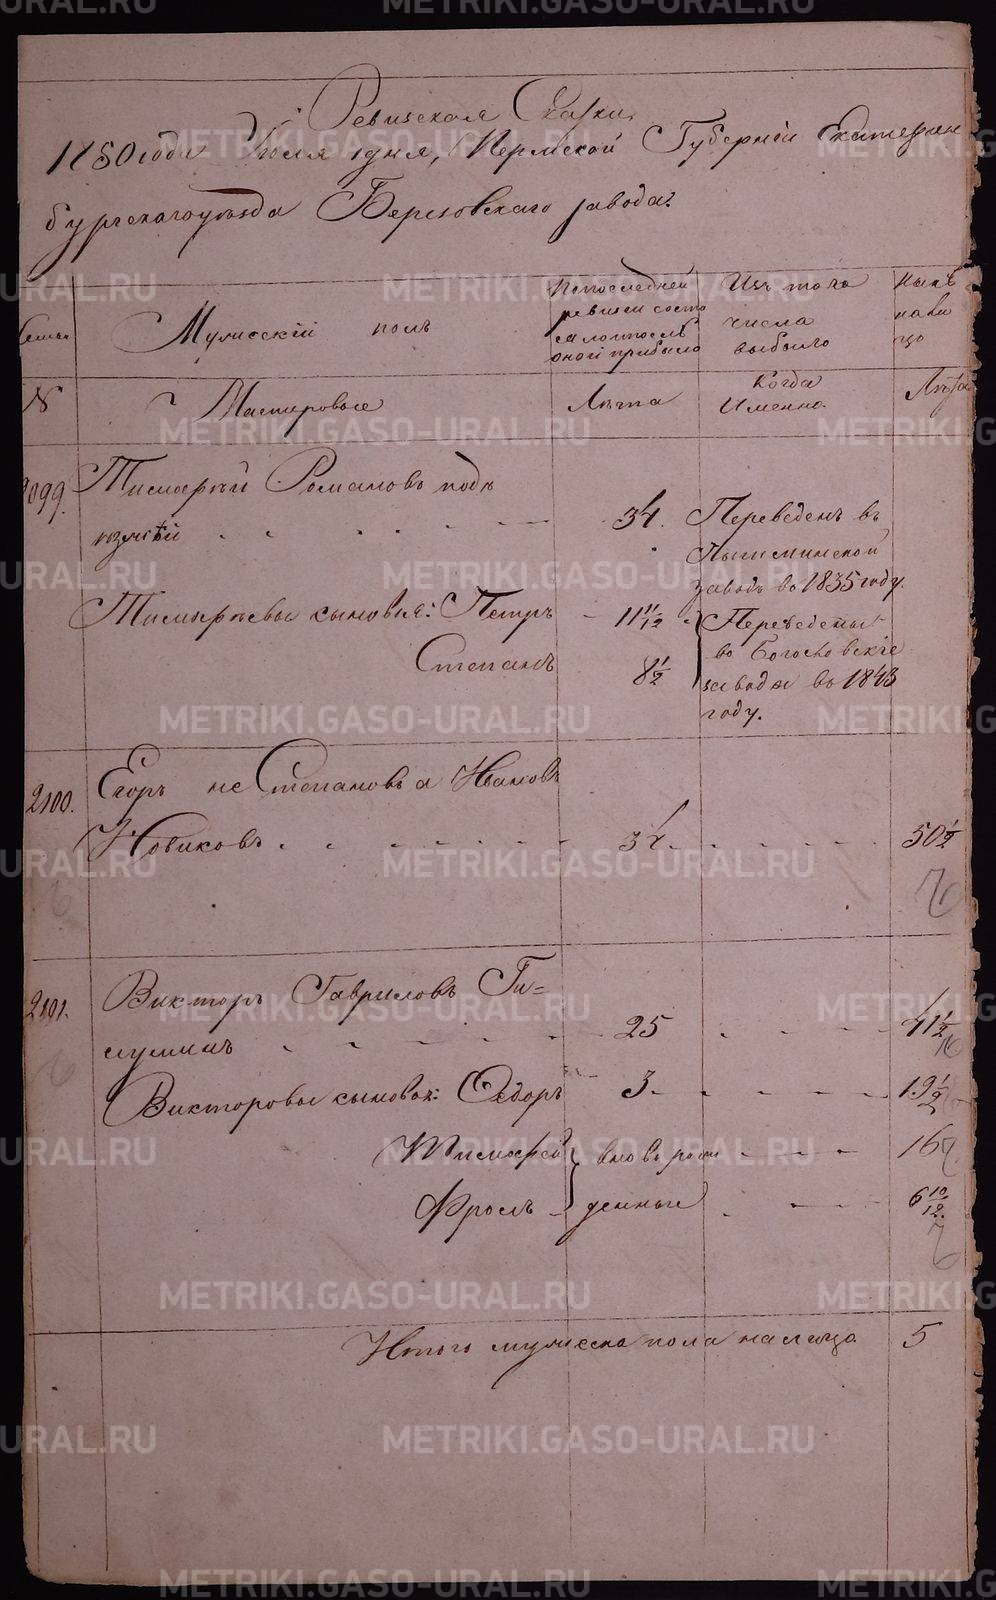 Ревизская Сказка,
1850 года Июля 1 дня, Пермской Губернии Екатерин
бургскаго уезда Березовскаго завода.
Семьи
Мужескій полъ
По последней
ревизіи состо
яло и после
оной прибыло
Изъ того
числа
выбыло
Ныне
на ли
цо
№
Мастеровые
Лета
Когда
Именно
Лета
2099.
Тимофей Романовъ
34.
Переведенъ въ
Пышминской
заводъ въ 1835 году.
Тимофеевы сыновья: Петръ
11 11/12
Переведены
Степанъ
8 1/2
въ Богословскіе
заводы въ 1843
году.
2100.
Егоръ не Степановъ а Ивановъ
Новиковъ
34
50 1/2
2101.
Викторъ Гавриловъ
25
41 1/2
Викторовы сыновья: Федоръ
3
19 1/2
Тимофей
вновь рож
16
Фролъ
денные
6 10/12
Итого мужеска пола на лицо
5
METRIKI.GASO-URAL.RU